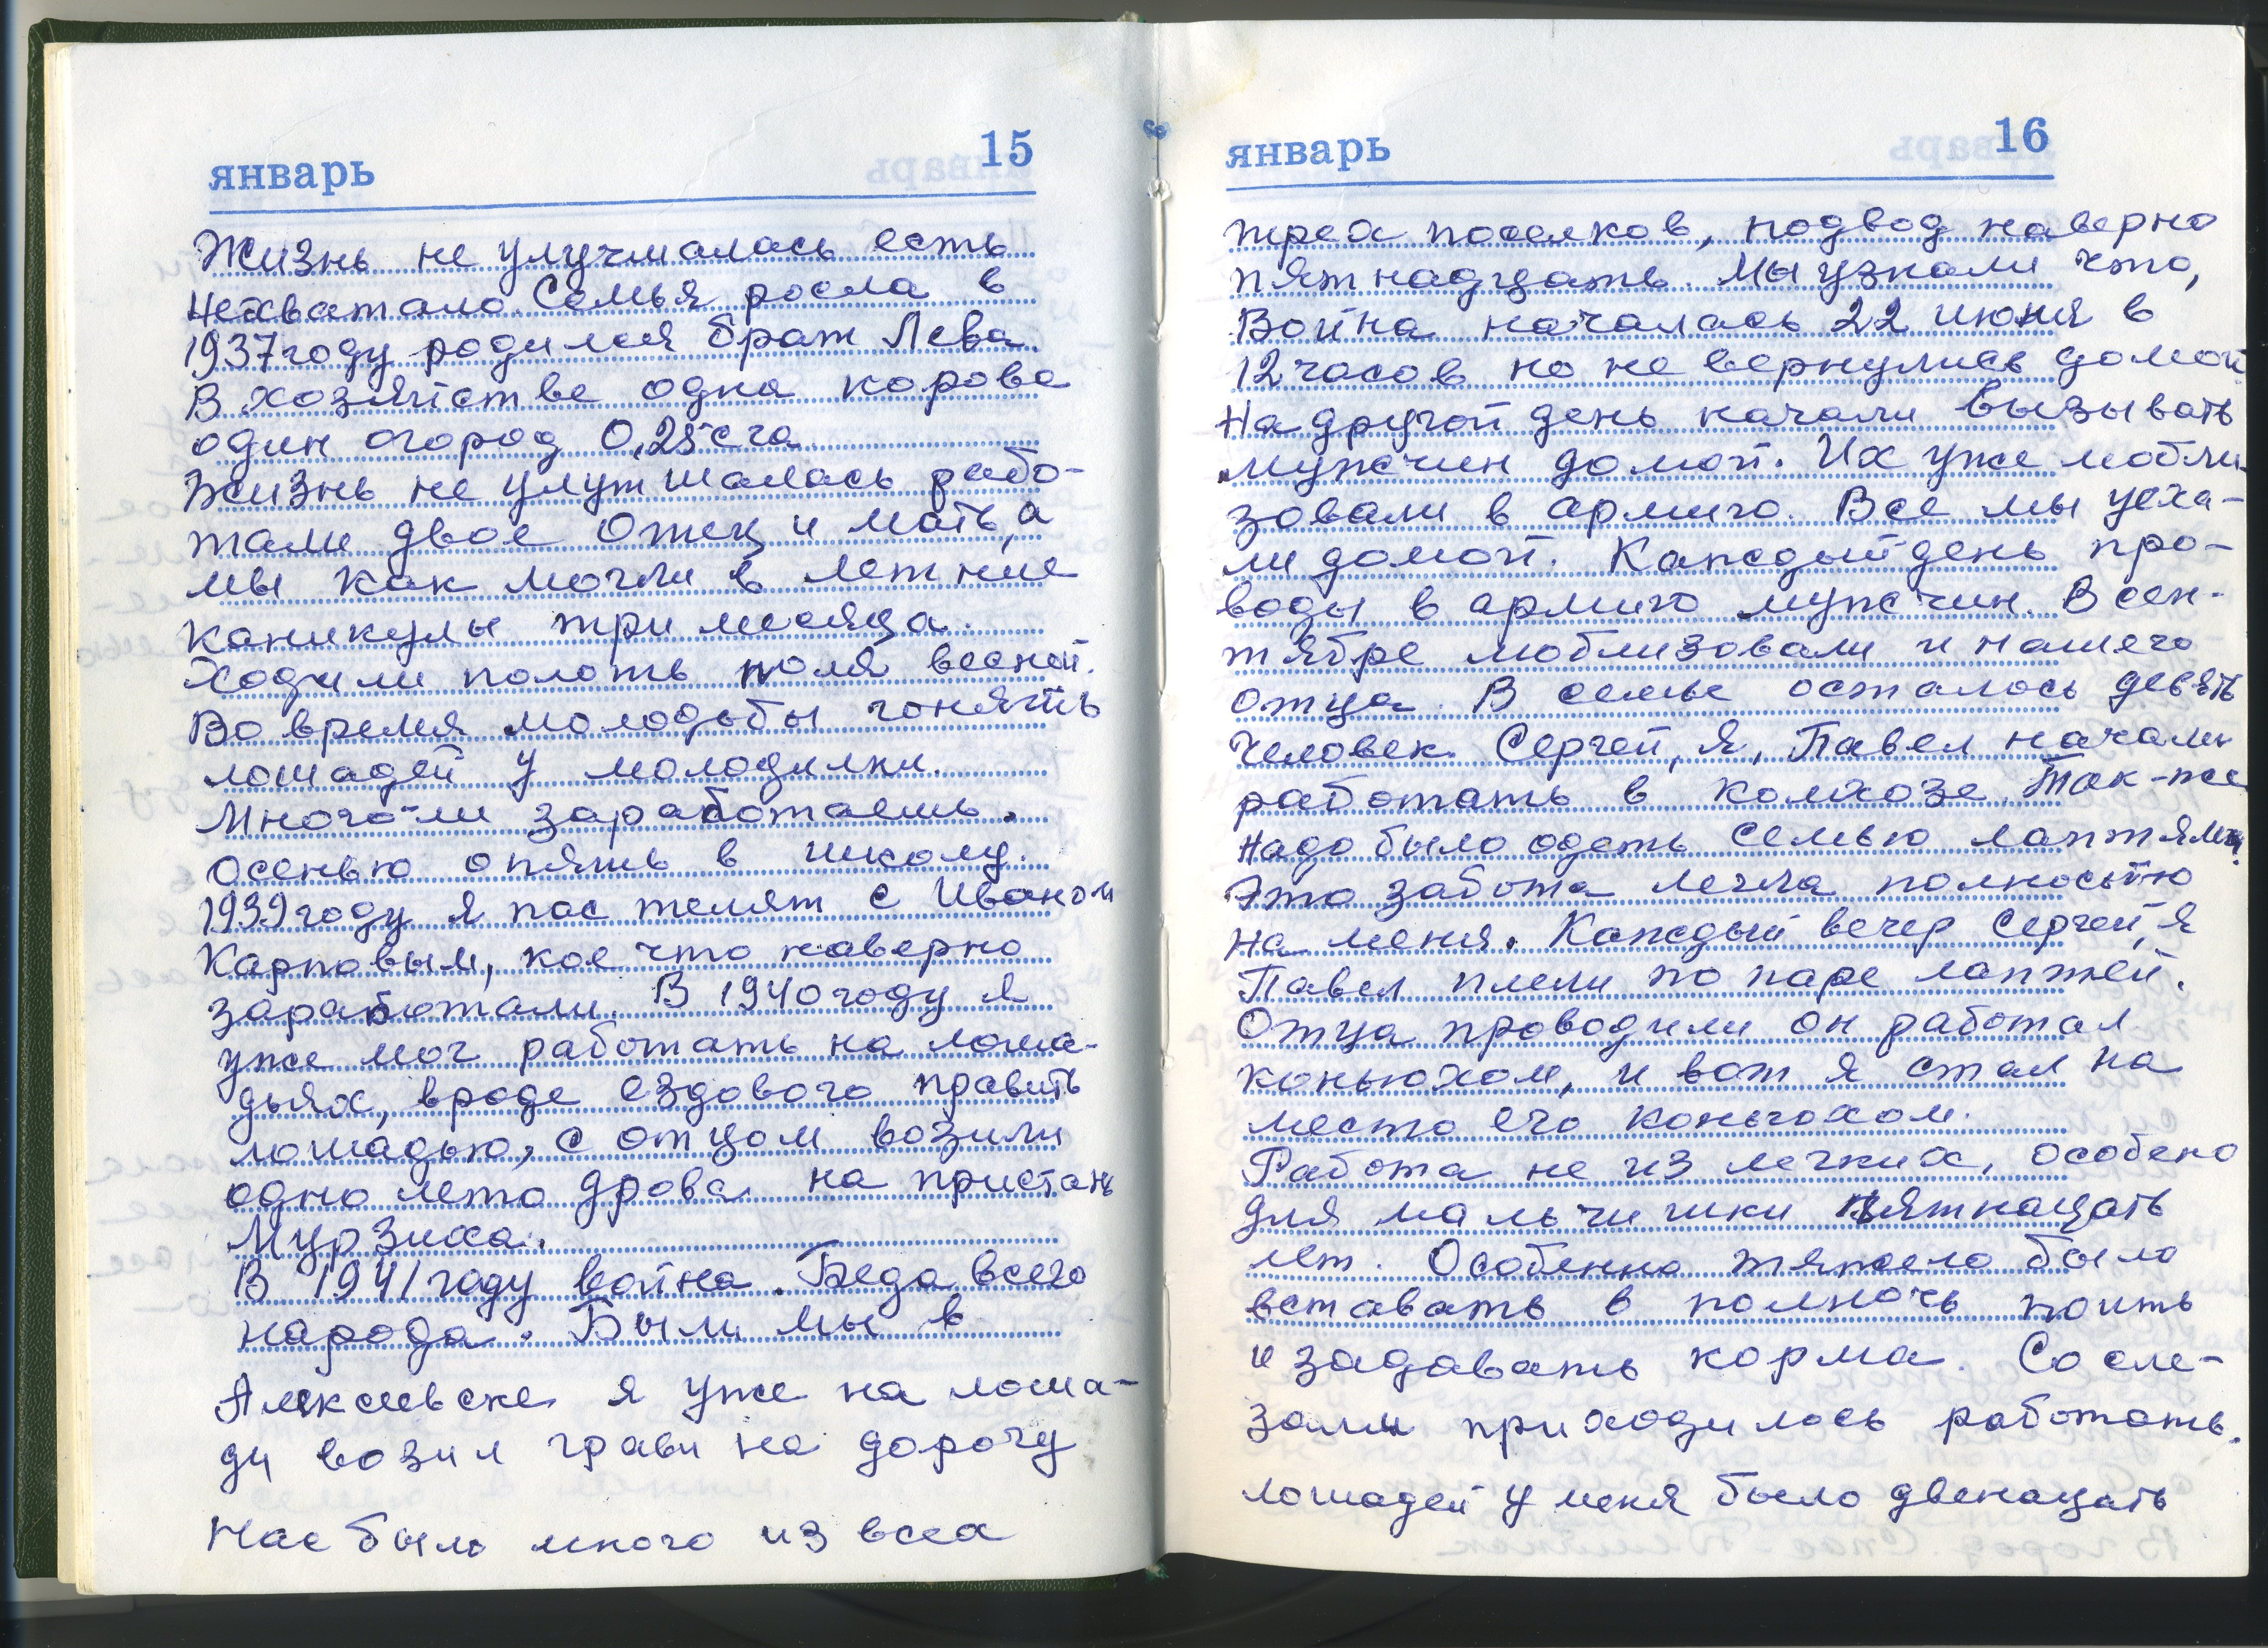 январь 15
Жизнь не улучшалась есть
нехватало. Семья росла в
1937 году родился брат Лева.
В хозяйстве одна корова
один огород 0,25 с га
Жизнь не улутшалась рабо-
тали двое Отец и мать, а
мы как могли в летние
каникулы три месяца.
Ходили полоть поля весной.
Во время молодьбы гонять
лошадей у молодилки.
Много-ли заработаешь.
осенью опять в школу.
1939 году я пас телят с Иваном
Карповым, кое что наверно
заработали. В 1940 году я
уже мог работать на лоша-
дьях, вроде ездового править
лошадью, с отцом возили
одно лето дрова на пристань
Мурзиха.
В 1941 году война. Беда всего
народа. Были мы в
Алексеевске я уже на лоша-
ди возил грави на дорогу
Нас было много из всех
январь 16
трех поселков, подвод наверно
пятнадцать. Мы узнали что,
Война началась 22 июня в
12 часов но не вернулись домой
На другой день начали вызывать
мужчин домой. Их уже мобли-
зовали в армию. Все мы уеха-
ли домой. Каждый день про-
воды в армию мужчин. В сен-
тябре моблизовали и нашего
отца. В семье осталось девять
человек. Сергей, я, Павел начали
работать в колхозе. Так-же
надо было одеть семью лаптями.
Это забота легла полностью
на меня. Каждый вечер Сергей, я
Павел плели по паре лаптей.
Отца проводили он работал
коньюхом, и вот я стал на
место его коньюхом.
Работа не из легких, особено
для мальчишки пятнацать
лет. Особенно тяжело было
вставать в полночь поить
и задавать корма. Со сле-
зами приходилось работать.
лошадей у меня было двенацать